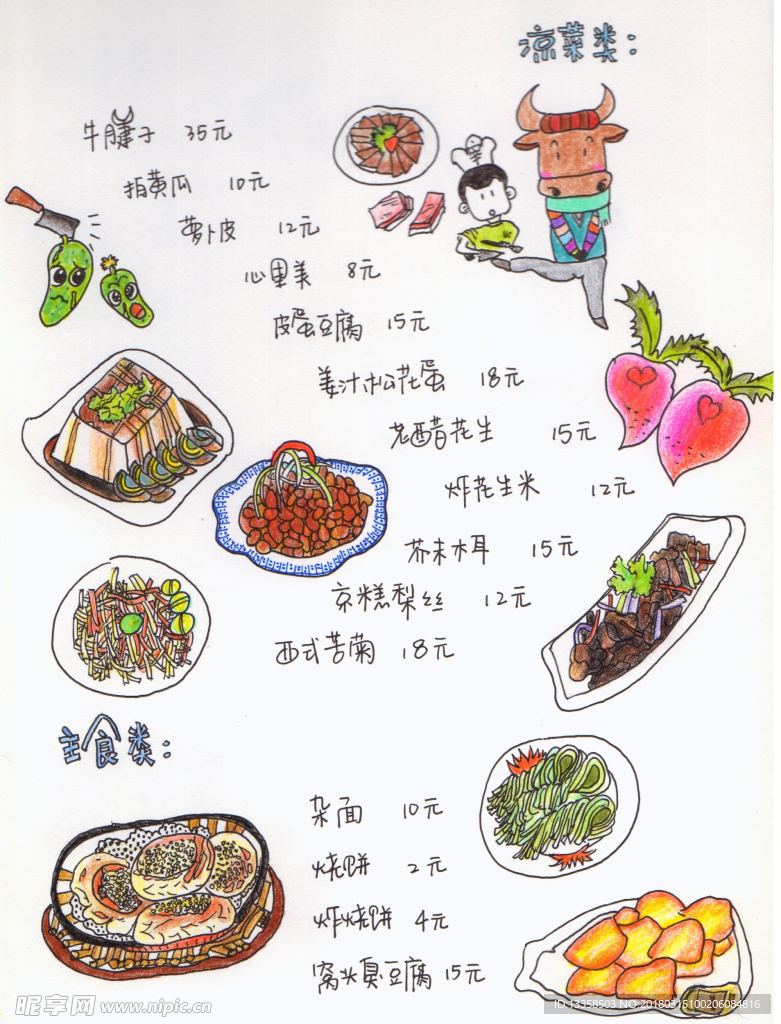 凉菜类:
牛腱子 35元
拍黄瓜 10元
萝卜皮 12元
心里美 8元
皮蛋豆腐 15元
姜汁松花蛋 18元
老醋花生 15元
炸花生米 12元
芥末木耳 15元
京糕梨丝 12元
西式苦菊 18元
主食类:
杂面 10元
烧饼 2元
炸烧饼 4元
窝头臭豆腐 15元
昵享网 www.nipic.cn
ID:13358503 NO:20180315100206084816